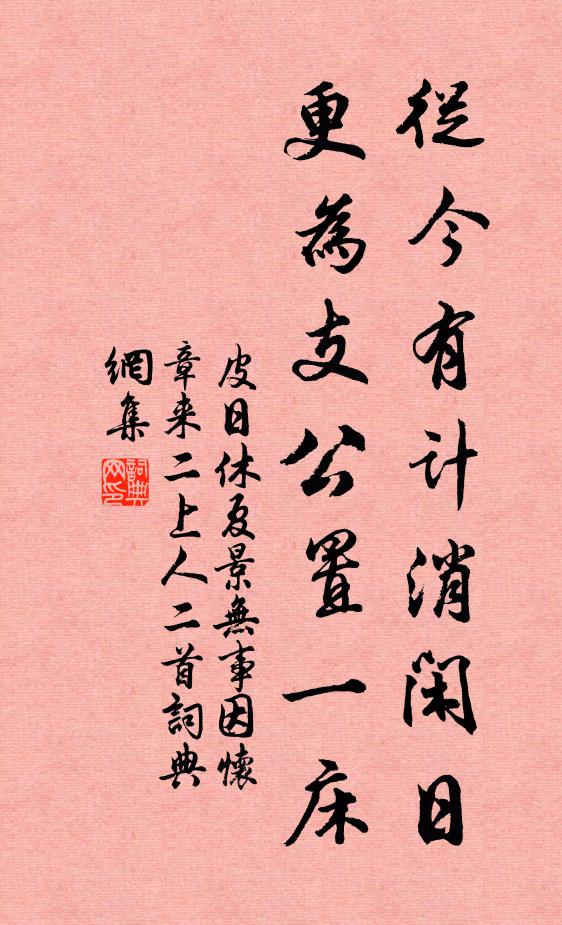 從今有計消閑日
更為支公置一床
皮日休夏景無事因懷
章来二上人二首詞典
網集
詞典
网印